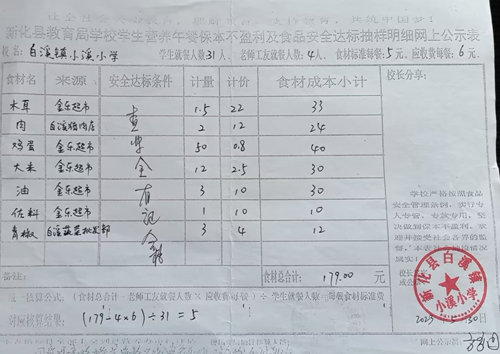 新化县教育局学校学生营养午餐保本不盈利及食品安全达标抽样明细网上公示表
校名：白溪镇小溪小学 学生就餐人数：31人，老师工友就餐人数：4人，食材标准每餐：5元，应收费每餐：6元。
食材名 来源 安全达标条件 计量 计价 食材成本小计 校长分享：
木耳 金乐超市 1.5 22 33
肉 白溪猪肉店 2 12 24
鸡蛋 金乐超市 50 0.8 40
大米 金乐超市 全 12 2.5 30
油 金乐超市 有 3 10 30
佐料 金乐超市 记 1 10 10
青椒 白溪蔬菜批发部 3 4 12
学校严格按照食品
安全管理条例，实行专
人专管，专款专用，坚
决做到保本不盈利，欢
迎并接受社会各界的监
属实！
备注： 食材总合计： 179.00 元
元一估算公式：（食材总合计-老师工友就餐人数×应收费每餐）÷学生就餐人数=每餐食材标准费
对应核算结果：(179-4×6)÷31=5
新化县白溪镇
小溪小学
2023 30日
网上公示